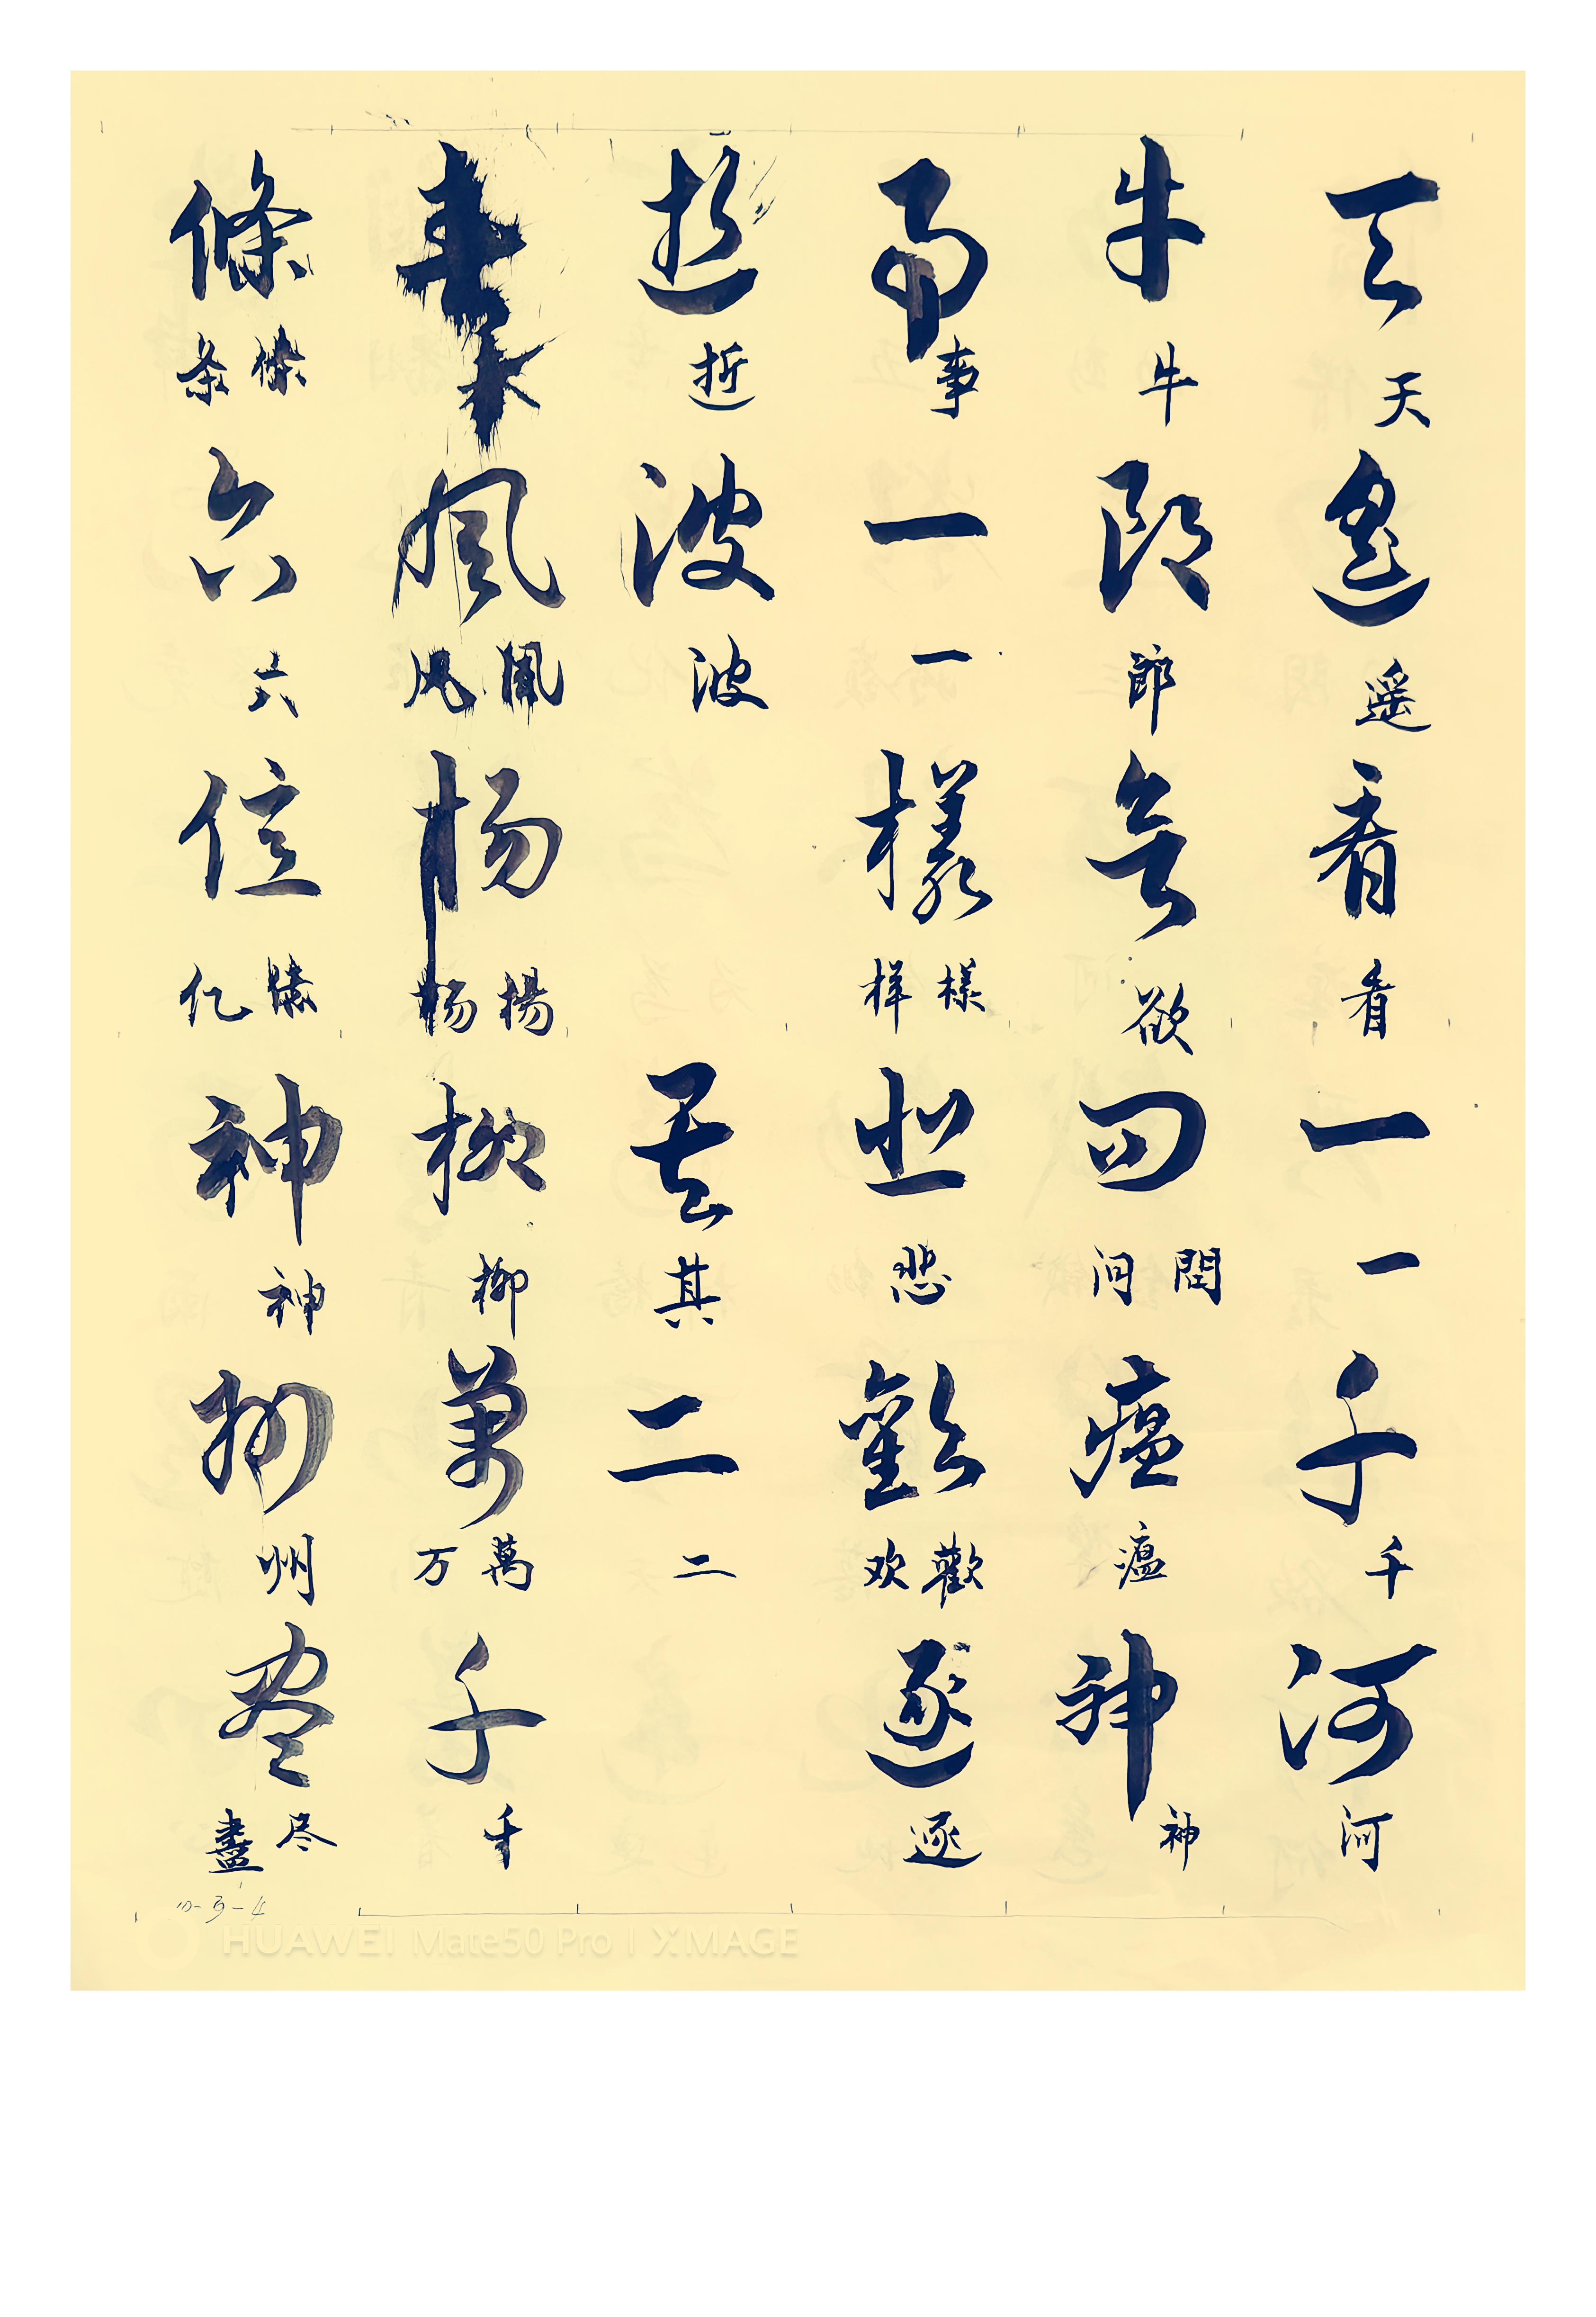 天天遥遥看看一一千千河河
牛牛郎郎欲欲问問问瘟瘟神神
事事一一樣樣样悲悲歡歡欢逐逐
逝逝波波其其二二
春春風風风楊楊杨柳柳萬萬万千千
條條条六六億億亿神神州州尽尽盡
HUAWEI Mate50 Pro | XMAGE